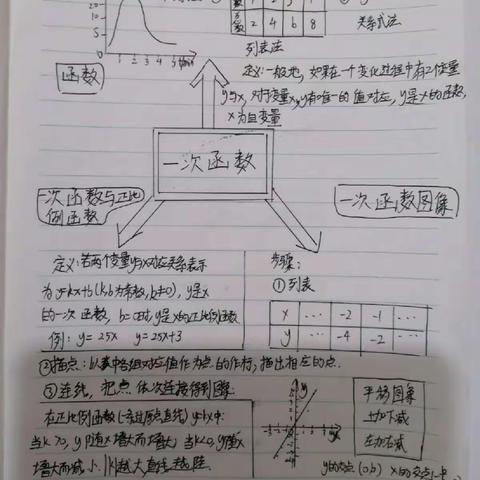 20
15
10
5
1 2 3 4 5
2 4 6 8
关系式法
列表法
函数
定义:一般地,如果在一个变化过程中有2个变量
y与x,对于变量x,y有唯一的值对应,y是x的函数,
x为自变量
一次函数
一次函数与正比
例函数
一次函数图像
定义:若两个变量y与x对应关系表示
为y=kx+b(k,b为常数,k≠0),y是x
的一次函数,b=0时,y是x的正比例函数
例: y=25x y=25x+3
步骤:
①列表
x … -2 -1 …
y … -4 -2 …
②描点:以表中各组对应值作为点的作标,描出相应的点.
③连线,把点依次连接得到图像
在正比例函数(经过原点直线)y=kx中:
当k>0,y随x增大而增大,当k<0,y随x
增大而减小.|k|越大直线越陡.
平移图象
上加下减
左加右减
y的交点(0,b) x的交点